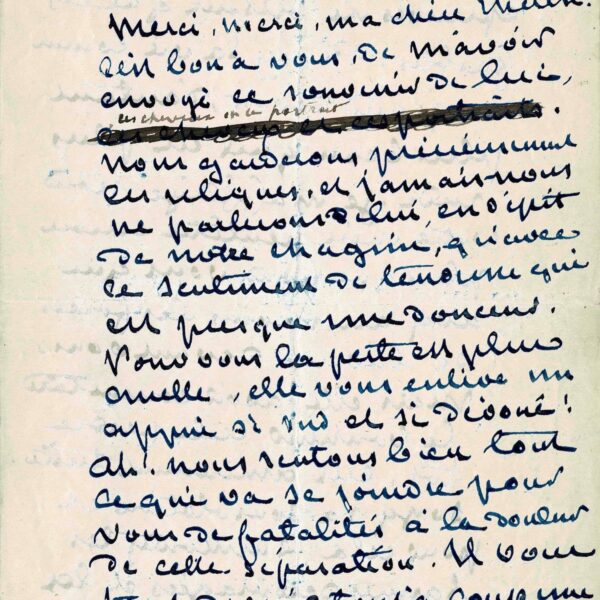 Merci, merci, ma chère
c'est bon à vous, de m'avoir
envoyé ce souvenir de lui,
ces cheveux et ce portrait
ces cheveux et ces portraits.
Nous garderons précieusement
ces reliques, et jamais nous
ne parlerons de lui, en dépit
de notre chagrin, qu'avec
ce sentiment de tendresse qui
est presque une douceur.
Pour vous la perte est plus
cruelle, elle vous enlève un
appui si vrai et si dévoué!
Ah! nous sentons bien tout
ce qui va se joindre pour
vous de fatalités à la douleur
de cette séparation. Il vous